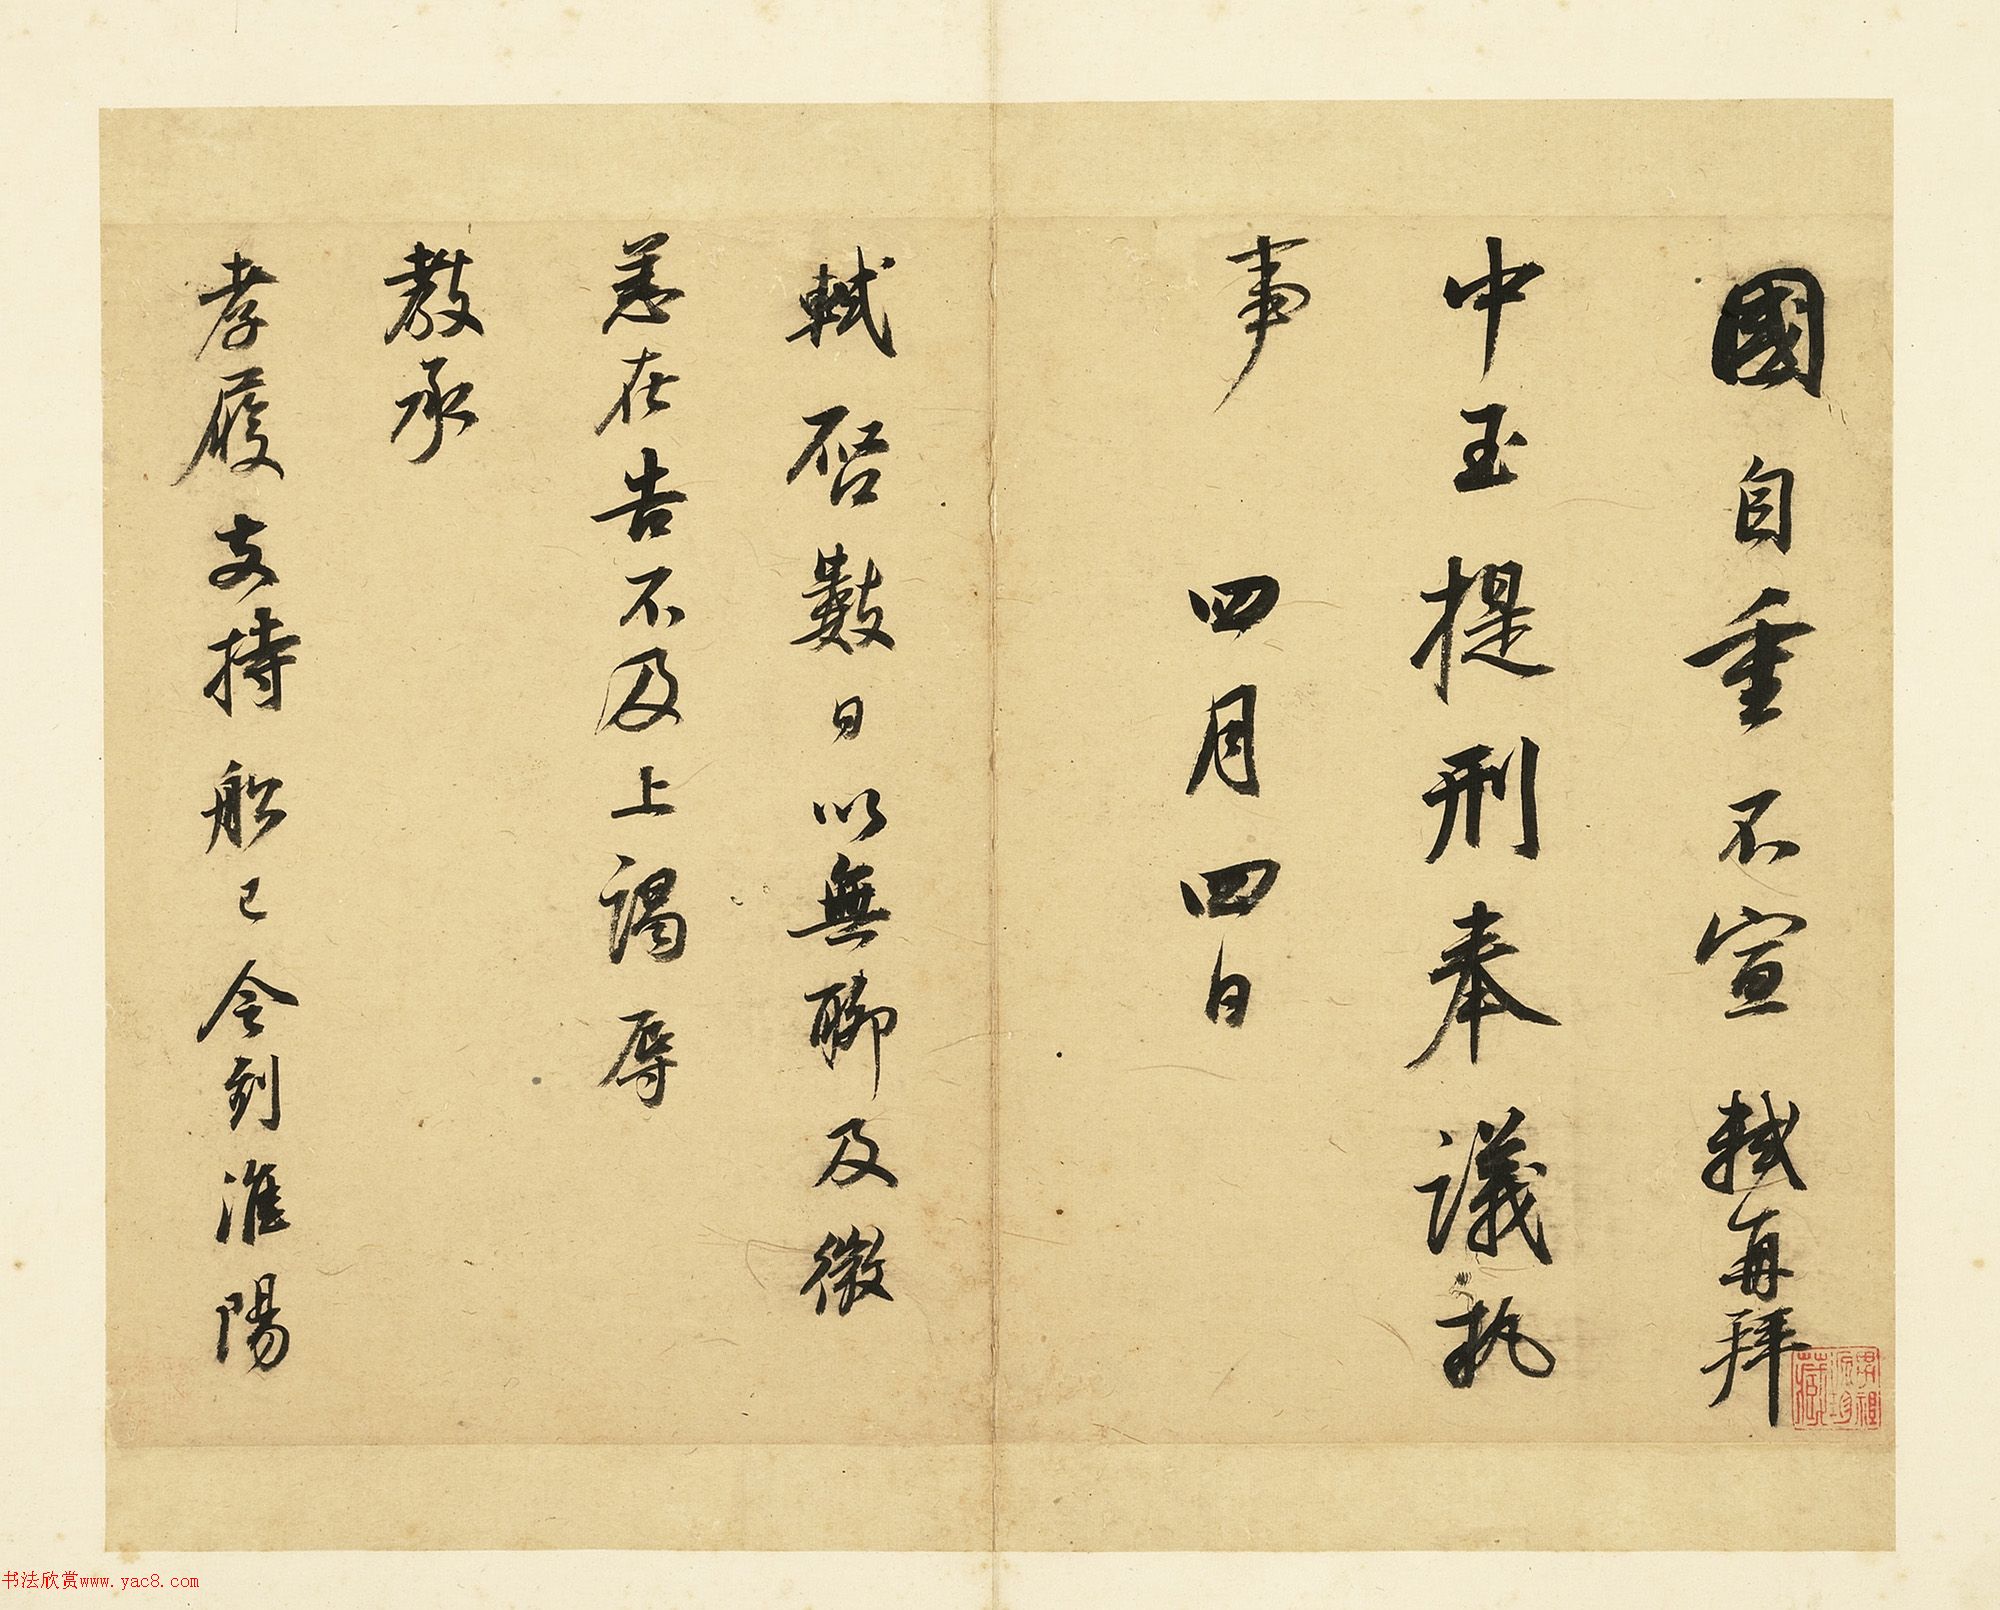 國自重不宣軾再拜
中玉提刑奉議執
事　四月四日
軾啓數日以無聊及微
恙在告不及上謁辱
教承
孝履支持船已令刻淮陽
書法欣赏www.yac8.com